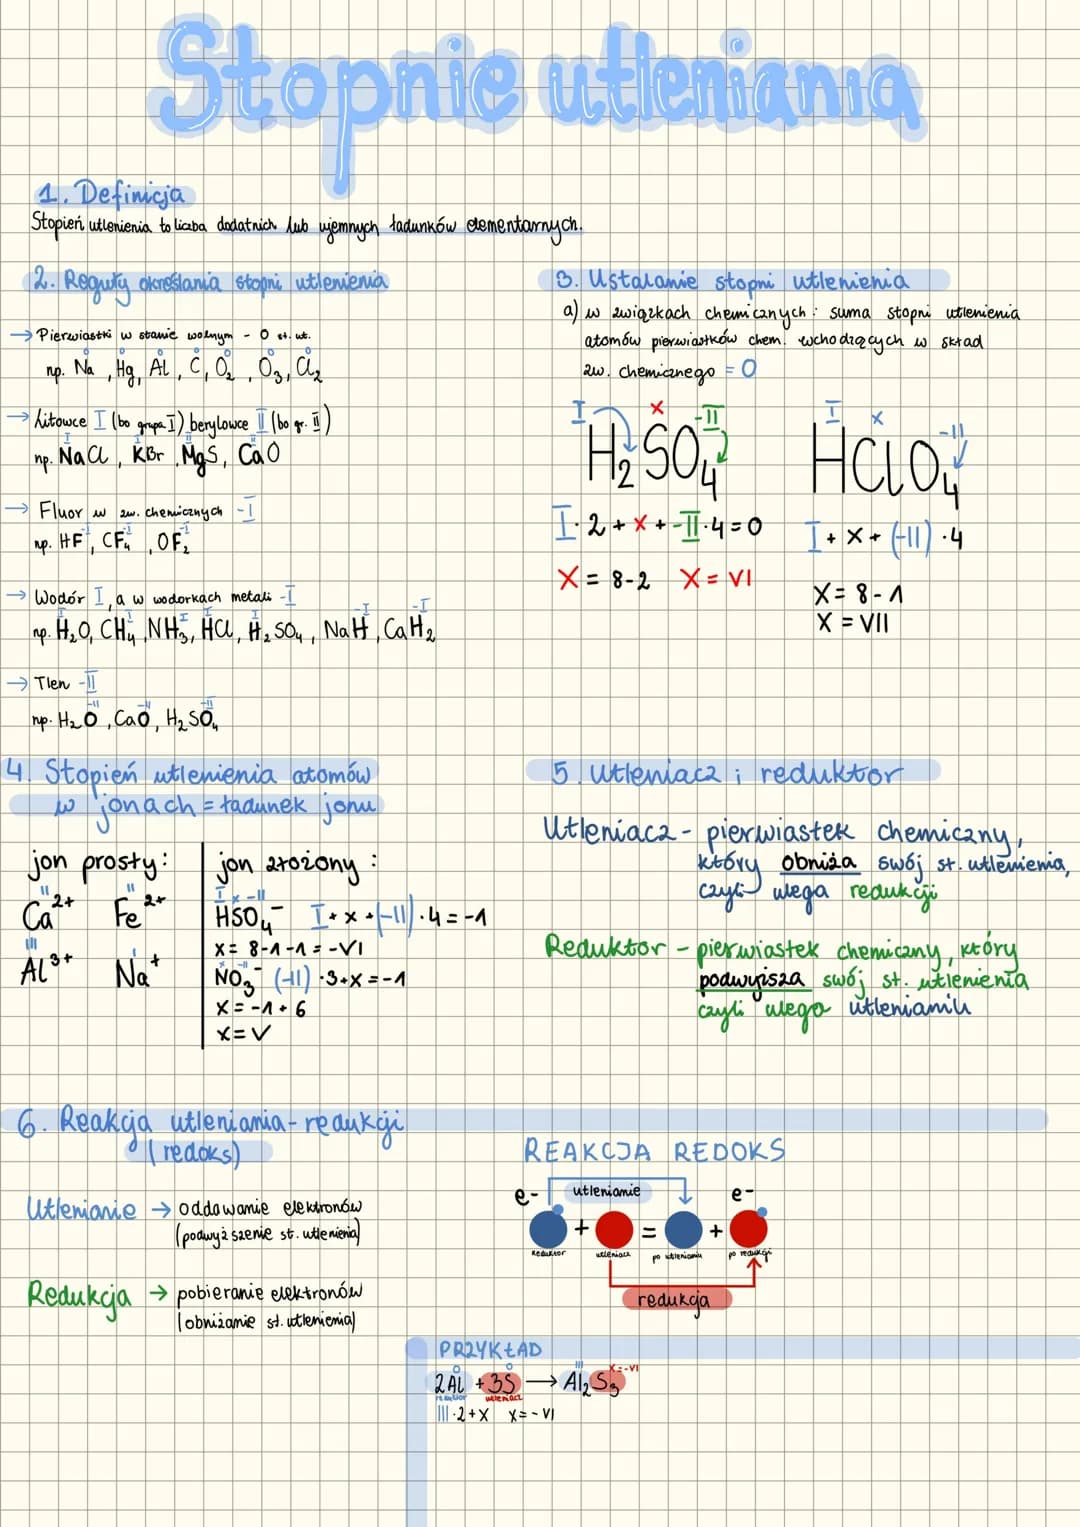 Stopnie utleniania
1. Definicja
Stopień utlenienia to liczba dodatnich lub ujemnych ładunków elementarnych.
2. Reguły określania stopni utlenienia
→ Pierwiastki w stanie wolnym - 0 st. ut.
0 0 0 0 0 0 0
np. Na, Hg, Al, C, O₂, O₃, Cl₂
→ Litowce I (bo grupa I) berylowce II (bo gr. II)
I I II II
np. NaCl, KBr, MgS, CaO
→ Fluor w zw. chemicznych -I
-I -I -I
np. HF, CF₄, OF₂
→ Wodór I, a w wodorkach metali -I
I I I I I -I -I
np. H₂O, CH₄, NH₃, HCl, H₂SO₄, NaH, CaH₂
→ Tlen -II
-II -II -II
np. H₂O, CaO, H₂SO₄
3. Ustalanie stopni utlenienia
a) w związkach chemicznych: suma stopni utlenienia
atomów pierwiastków chem. wchodzących w skład
zw. chemicznego = 0
I x -II
H₂SO₄
I·2 + x + -II·4 = 0
x = 8-2 x = VI
I x -II
HClO₄
I + x + (-II)·4
x = 8-1
x = VII
4. Stopień utlenienia atomów
w jonach = ładunek jonu
jon prosty:
II II
Ca²⁺ Fe²⁺
III I
Al³⁺ Na⁺
jon złożony:
I x -II
HSO₄⁻ I + x + (-II)·4 = -1
x = 8-1-1 = -VI
NO₃⁻ (-II)·3+x = -1
x = -1+6
x = V
5. Utleniacz i reduktor
Utleniacz - pierwiastek chemiczny,
który obniża swój st. utlenienia,
czyli ulega redukcji
Reduktor - pierwiastek chemiczny, który
podwyższa swój st. utlenienia
czyli ulega utlenianiu
6. Reakcja utleniania-redukcji
(redoks)
Utlenianie → oddawanie elektronów
(podwyższenie st. utlenienia)
Redukcja → pobieranie elektronów
(obniżanie st. utlenienia)
REAKCJA REDOKS
e- utlenianie e-
+ = +
Reduktor utleniacz po utlenianiu po redukcji
redukcja
PRZYKŁAD
0 0 III x=-VI
2Al + 3S → Al₂S₃
reduktor utleniacz
III·2+x x=-VI